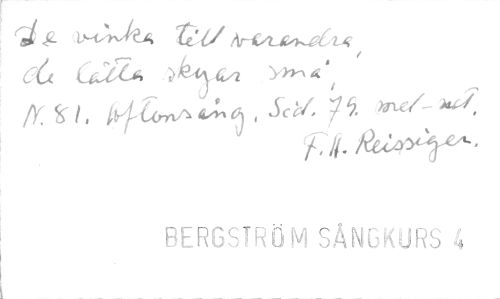 De vinka till varandra,
de lätta skyar små,
N. 81. Aftonsång. Sid. 79. mel-not.
F.A. Reissiger.
BERGSTRÖM SÅNGKURS 4